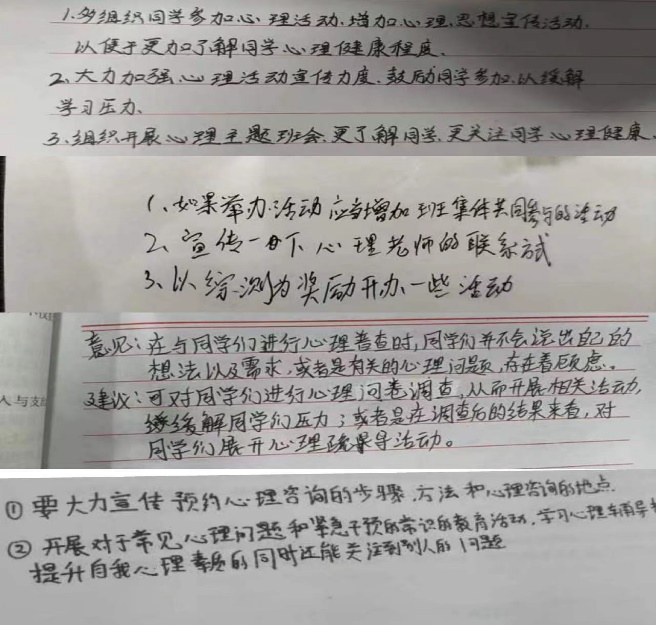 1.多组织同学参加心理活动.增加心理.思想宣传活动.
以便于更加了解同学心理健康程度.
2.大力加强心理活动宣传力度.鼓励同学参加.以缓解
学习压力.
3.组织开展心理主题班会.更了解同学.更关注同学心理健康.
1、如果举办活动应当增加班集体共同参与的活动
2、宣传一下心理老师的联系方式
3、以综测为奖励开办一些活动
意见:在与同学们进行心理普查时,同学们并不会说出自己的
想法以及需求,或者是有关的心理问题,存在着顾虑。
人与支
建议:可对同学们进行心理问卷调查,从而开展相关活动,
缓解同学们压力;或者是在调查后的结果来看,对
同学们展开心理疏导活动。
①要大力宣传预约心理咨询的步骤、方法和心理咨询的地点.
②开展对于常见心理问题和紧急干预的常识的教育活动,学习心理辅导
提升自我心理素质的同时还能关注到别人的问题